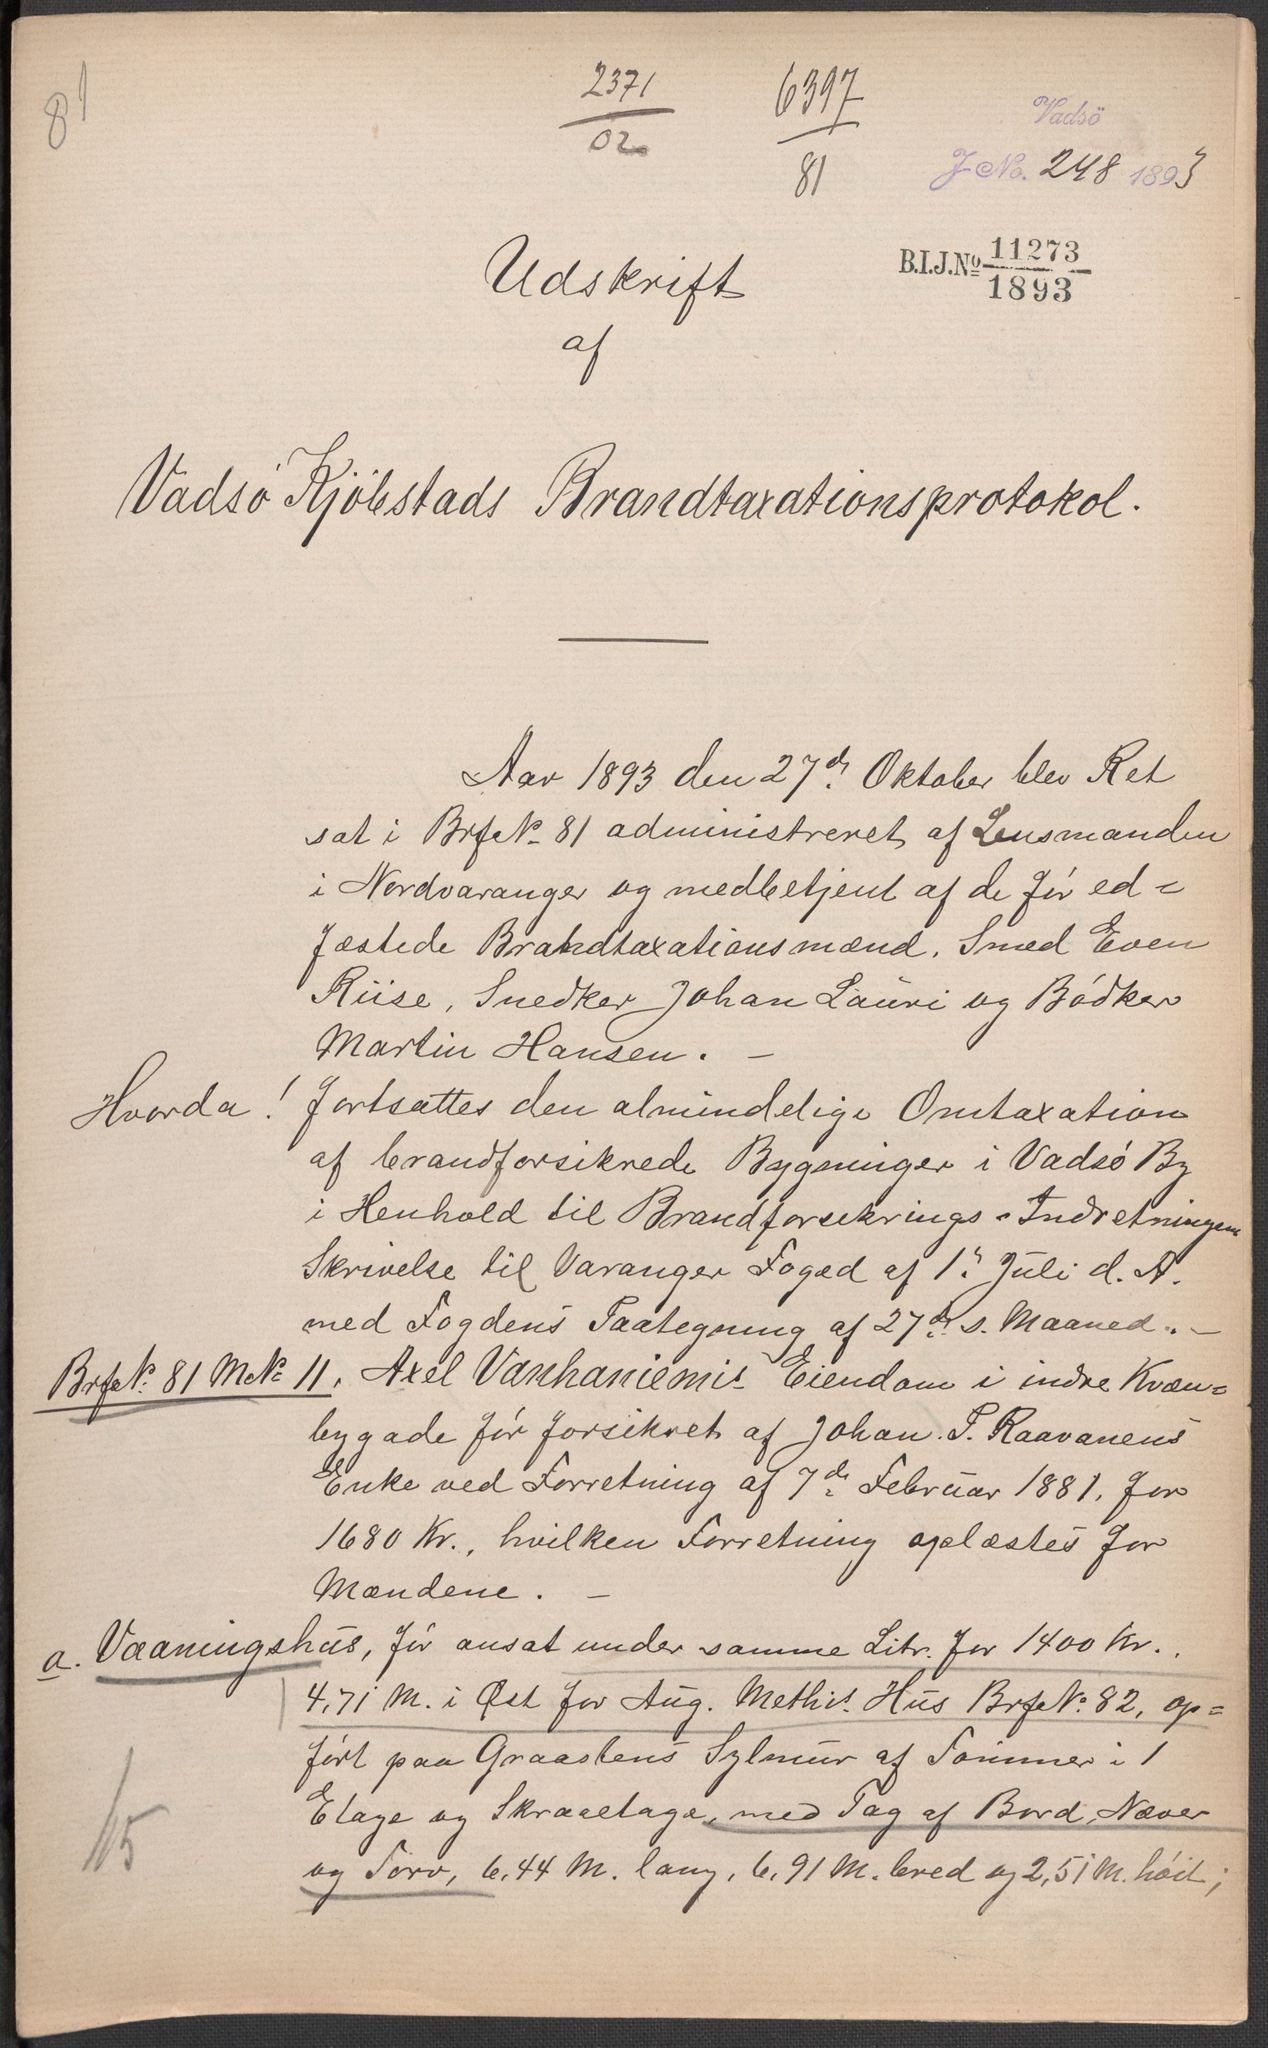 81
2371
02
6397
81
Vadsö
J No. 248 1893
B.I.J.No 11273
1893
Udskrift
af
Vadsø Kjøbstads Brandtaxationsprotokol.
Aar 1893 den 27de Oktober blev Ret
sat i Brfc No 81 administreret af Lensmanden
i Nordvaranger og medbetjent af de før ed=
fæstede Brandtaxationsmænd, Smed Even
Riise, Snedker Johan Lauri og Bødker
Martin Hansen. –
Hvorda! fortsattes den almindelige Omtaxation
af brandforsikrede Bygninger i Vadsø By
i Henhold til Brandforsikrings-Indretningens
Skrivelse til Varanger Foged af 1ste Juli d. A.
med Fogdens Paategning af 27de s. Maaned. –
Brfc No. 81 M No 11. Axel Vanhaniemis Eiendom i indre Kvæn=
bygade før forsikret af Johan P. Raavanens
Enke ved Forretning af 7de Februar 1881, for
1680 Kr., hvilken Forretning oplæstes for
Mændene. –
a. Vaaningshus, før ansat under samme Litr. for 1400 Kr.,
4,71 M. i Øst for Aug. Methis Hus Brfc No. 82, op=
ført paa Graastens Sylmur af Tømmer i 1
Etage og Skraaetage, med Tag af Bord, Næver
og Torv, 6,44 M. lang, 6,91 M. bred og 2,51 M. høit;